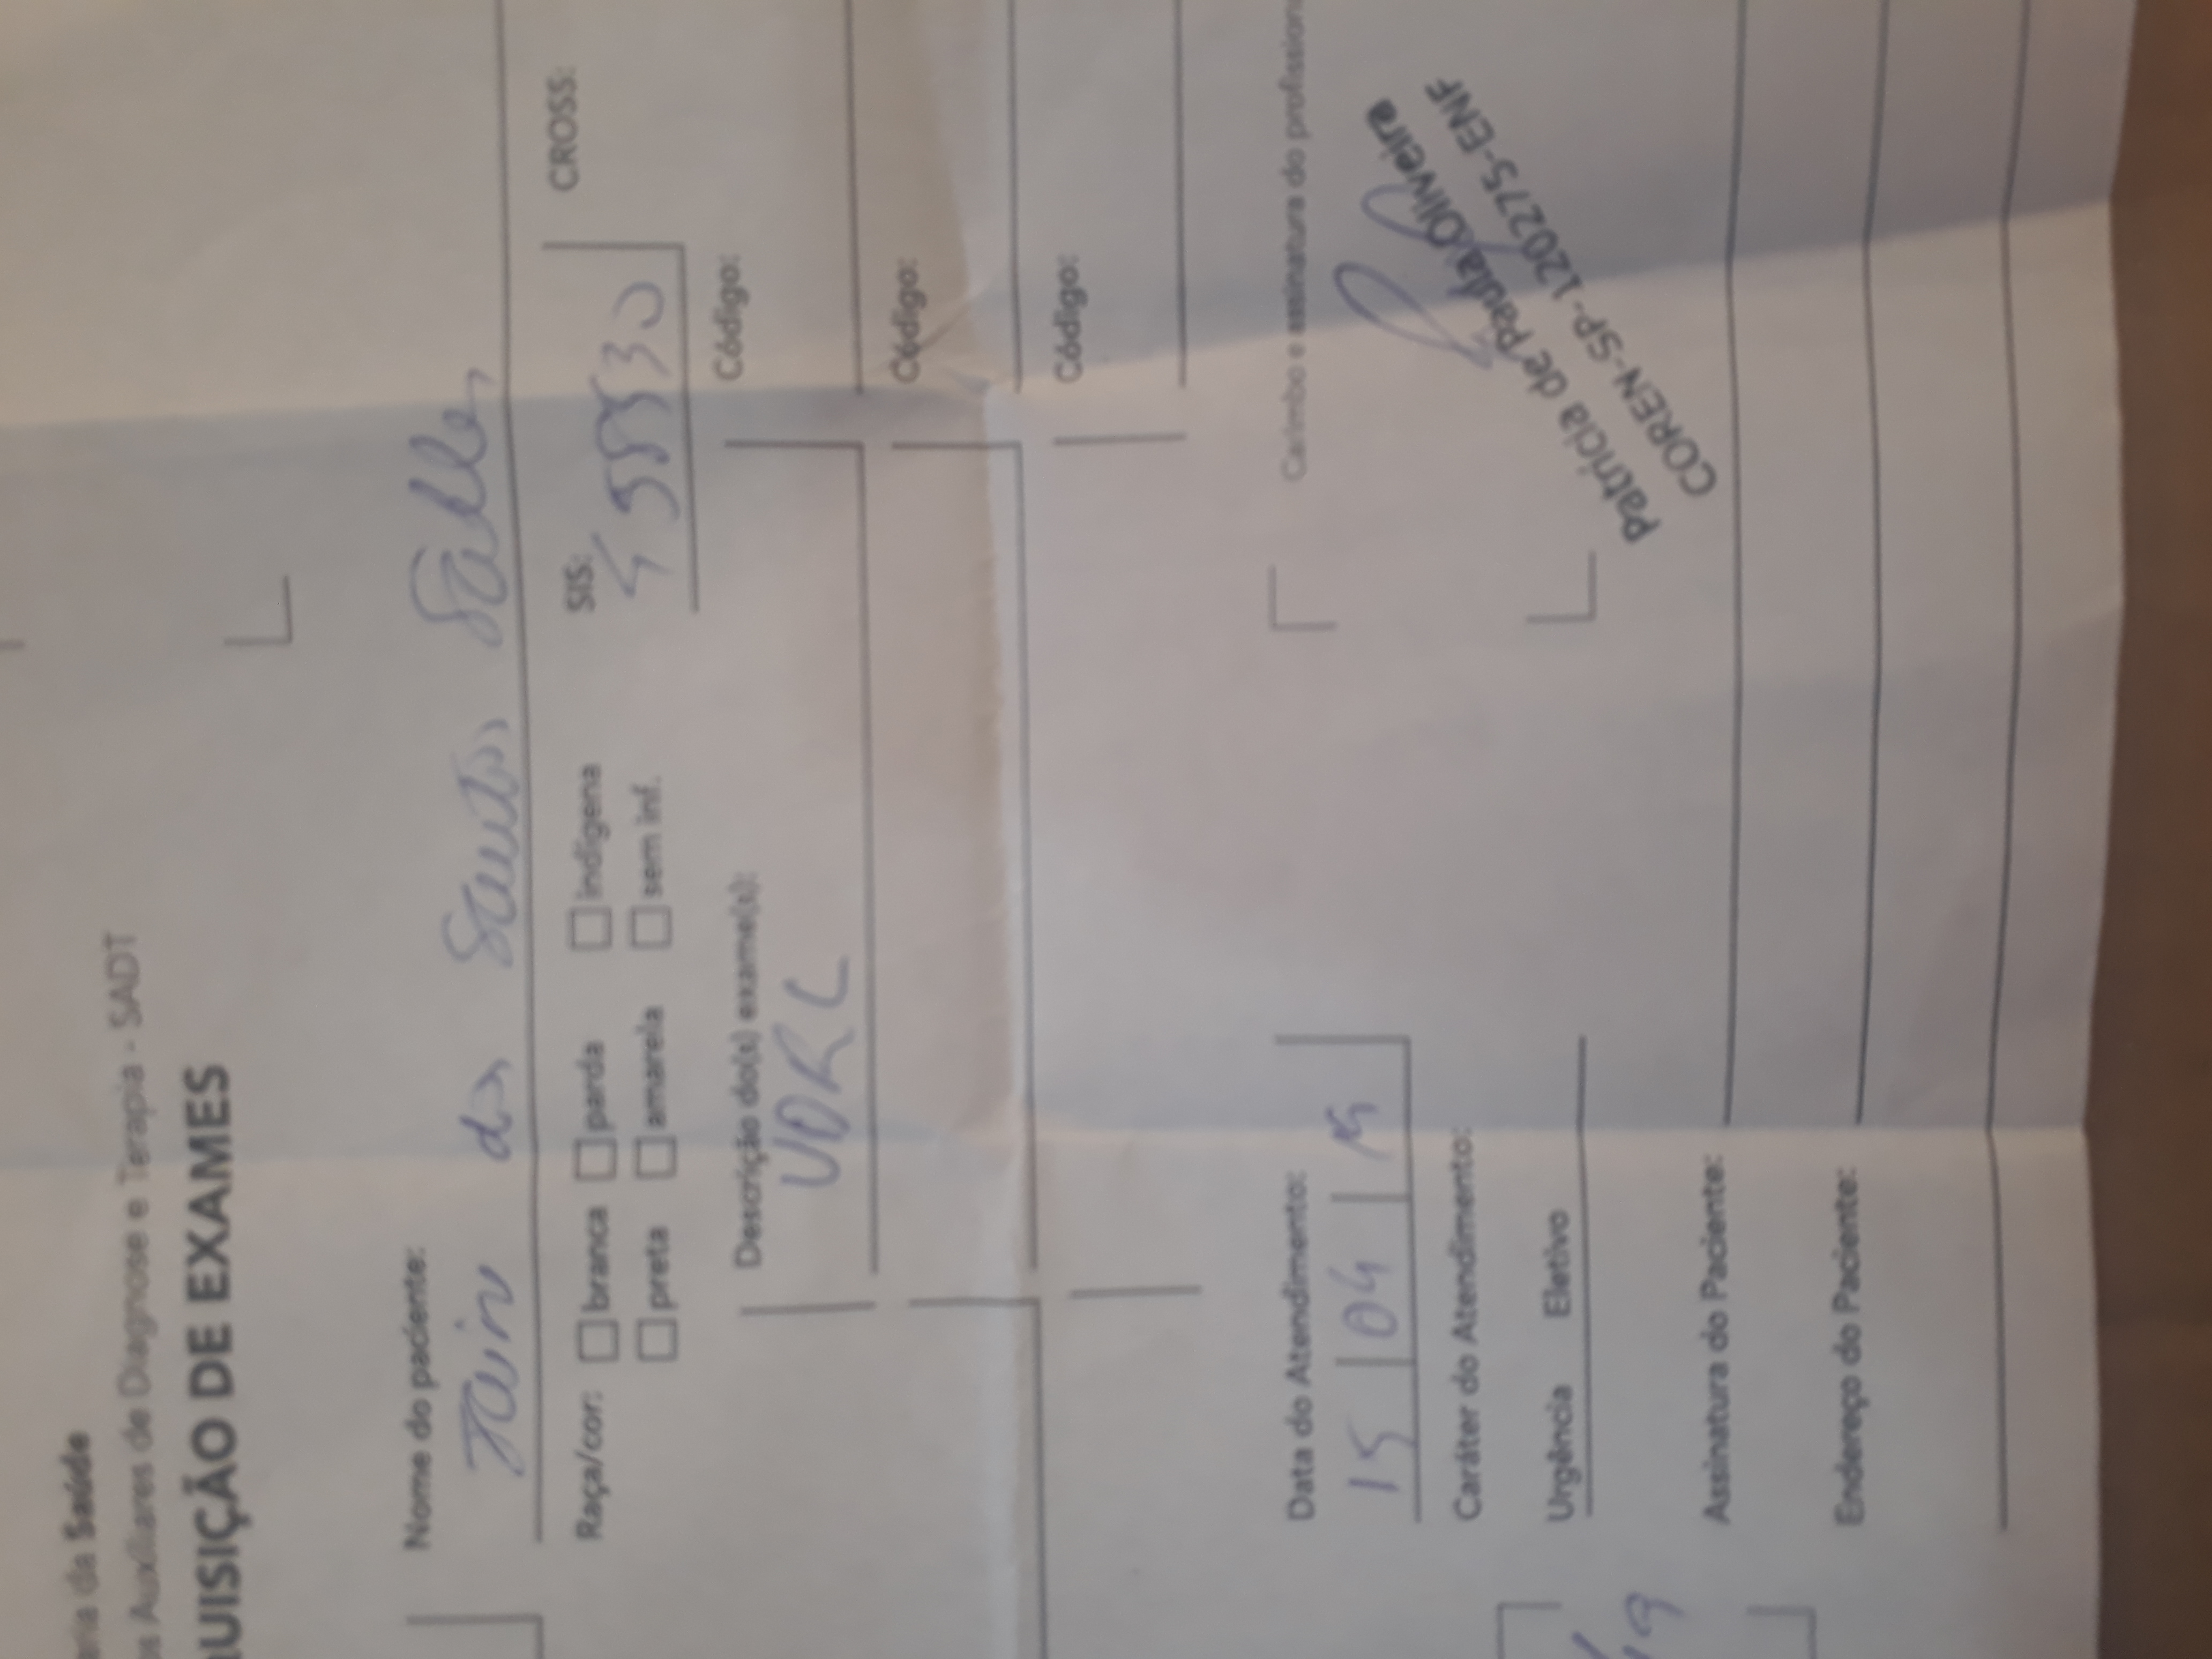 aria da Saúde
os Auxiliares de Diagnose e Terapia - SADT
QUISIÇÃO DE EXAMES
Nome do paciente:
dos Santos Salles
Raça/cor: branca parda indígena
preta amarela sem inf.
SIS:
CROSS:
Descrição do(s) exame(s):
VDRL
Código:
Código:
Código:
Data do Atendimento:
15 | 04 | 19
Carimbo e assinatura do profission
Caráter do Atendimento:
Urgência Eletivo
Patrícia de Paula Oliveira
COREN-SP-120275-ENF
/19
Assinatura do Paciente:
Endereço do Paciente: